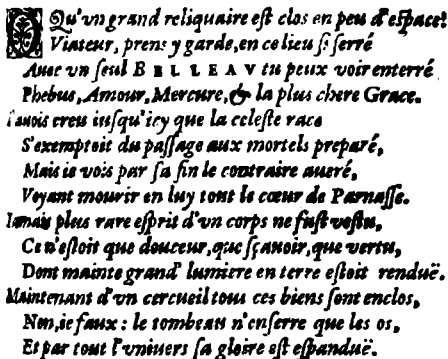 Qu'vn grand reliquaire est clos en peu d'espace!
Viateur, prens y garde, en ce lieu si serré
Auec vn seul BELLEAV tu peux voir enterré
Phebus, Amour, Mercure, & la plus chere Grace.
I'auois creu iusqu'icy que la celeste race
S'exemptoit du passage aux mortels preparé,
Mais ie vois par sa fin le contraire aueré,
Voyant mourir en luy tout le cœur de Parnasse.
Iamais plus rare esprit d'vn corps ne fust vestu,
Ce n'estoit que douceur, que sçauoir, que vertu,
Dont mainte grand' lumiere en terre estoit renduë.
Maintenant d'vn cercueil tous ces biens sont enclos,
Non, ie faux : le tombeau n'enserre que les os,
Et par tout l'vniuers sa gloire est espanduë.